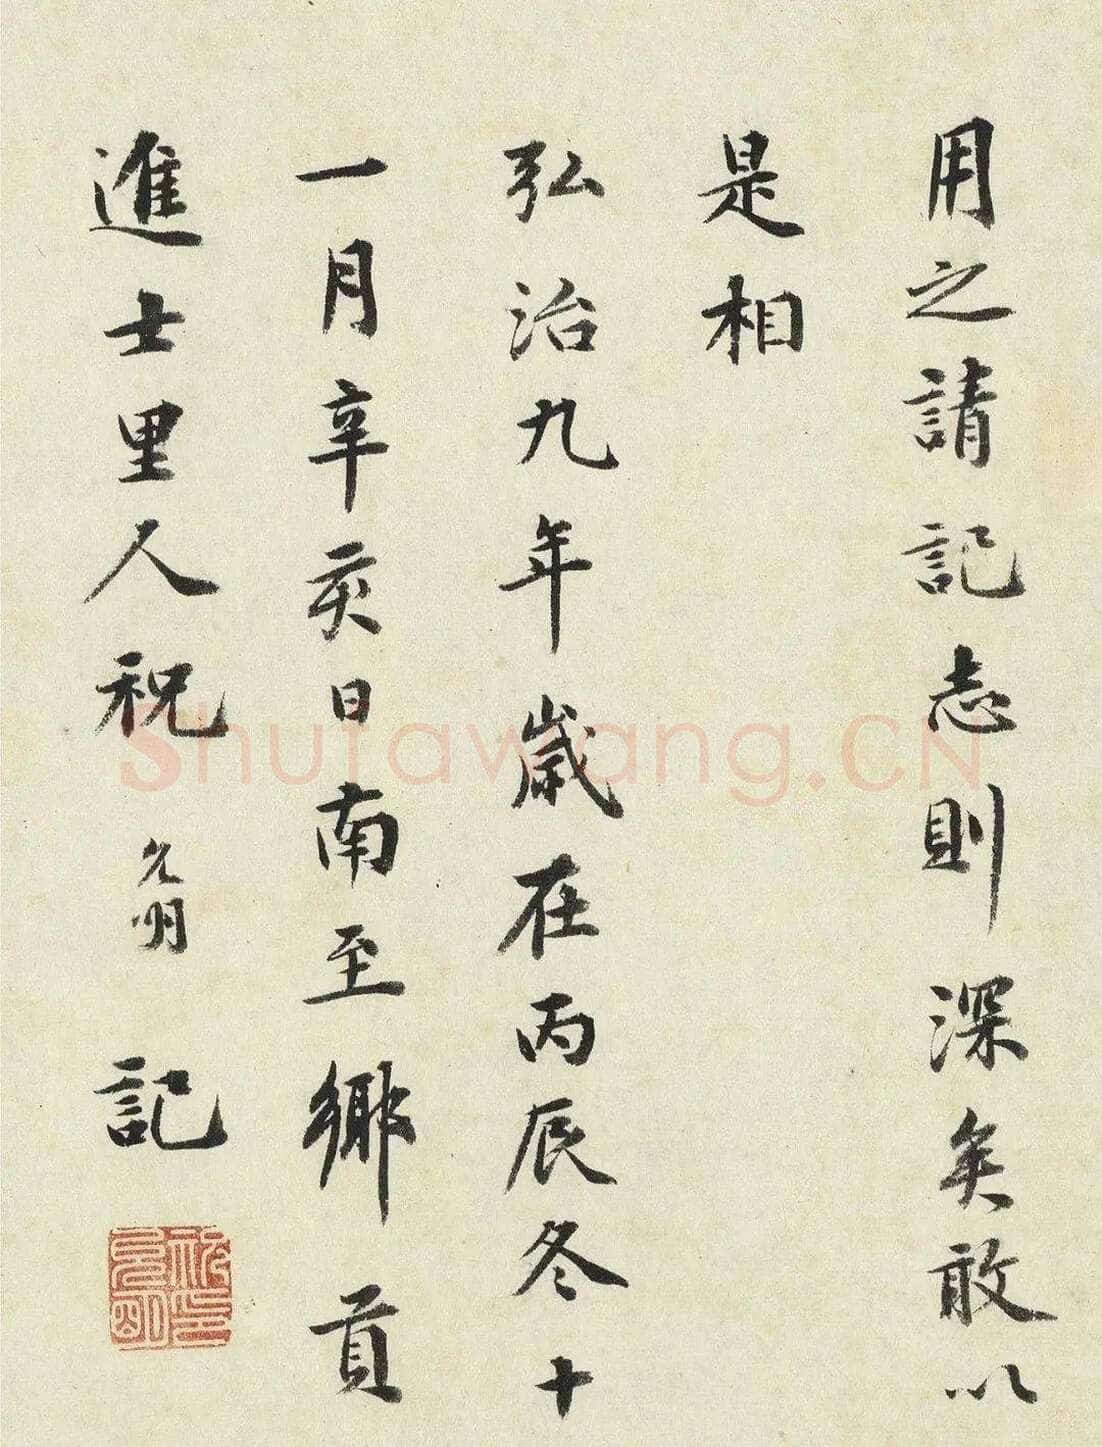 用之請記志則深矣敢以
是相
弘治九年歲在丙辰冬十
一月辛亥日南至鄉貢
進士里人祝允明記
Shufawang.CN